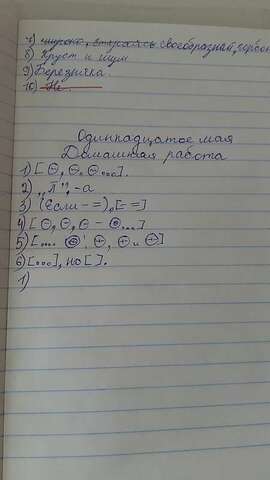 7) широко, стараясь своеобразный,
8) Хруст и шум
9) Березничка.
10) Не
Одиннадцатое мая
Домашняя работа
1) [⊖, ⊖, ⊖...].
2) „П", -а
3) (Если - =), [- =]
4) [⊖, ⊖, ⊖ - ⊜...]
5) [.... ⊜: ⊕, ⊕ и ⊕]
6) [...], но [ ].
1)